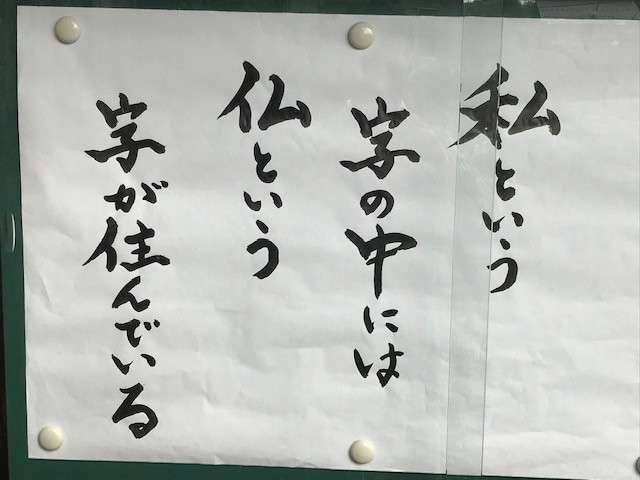 私という
字の中には
仏という
字が住んでいる